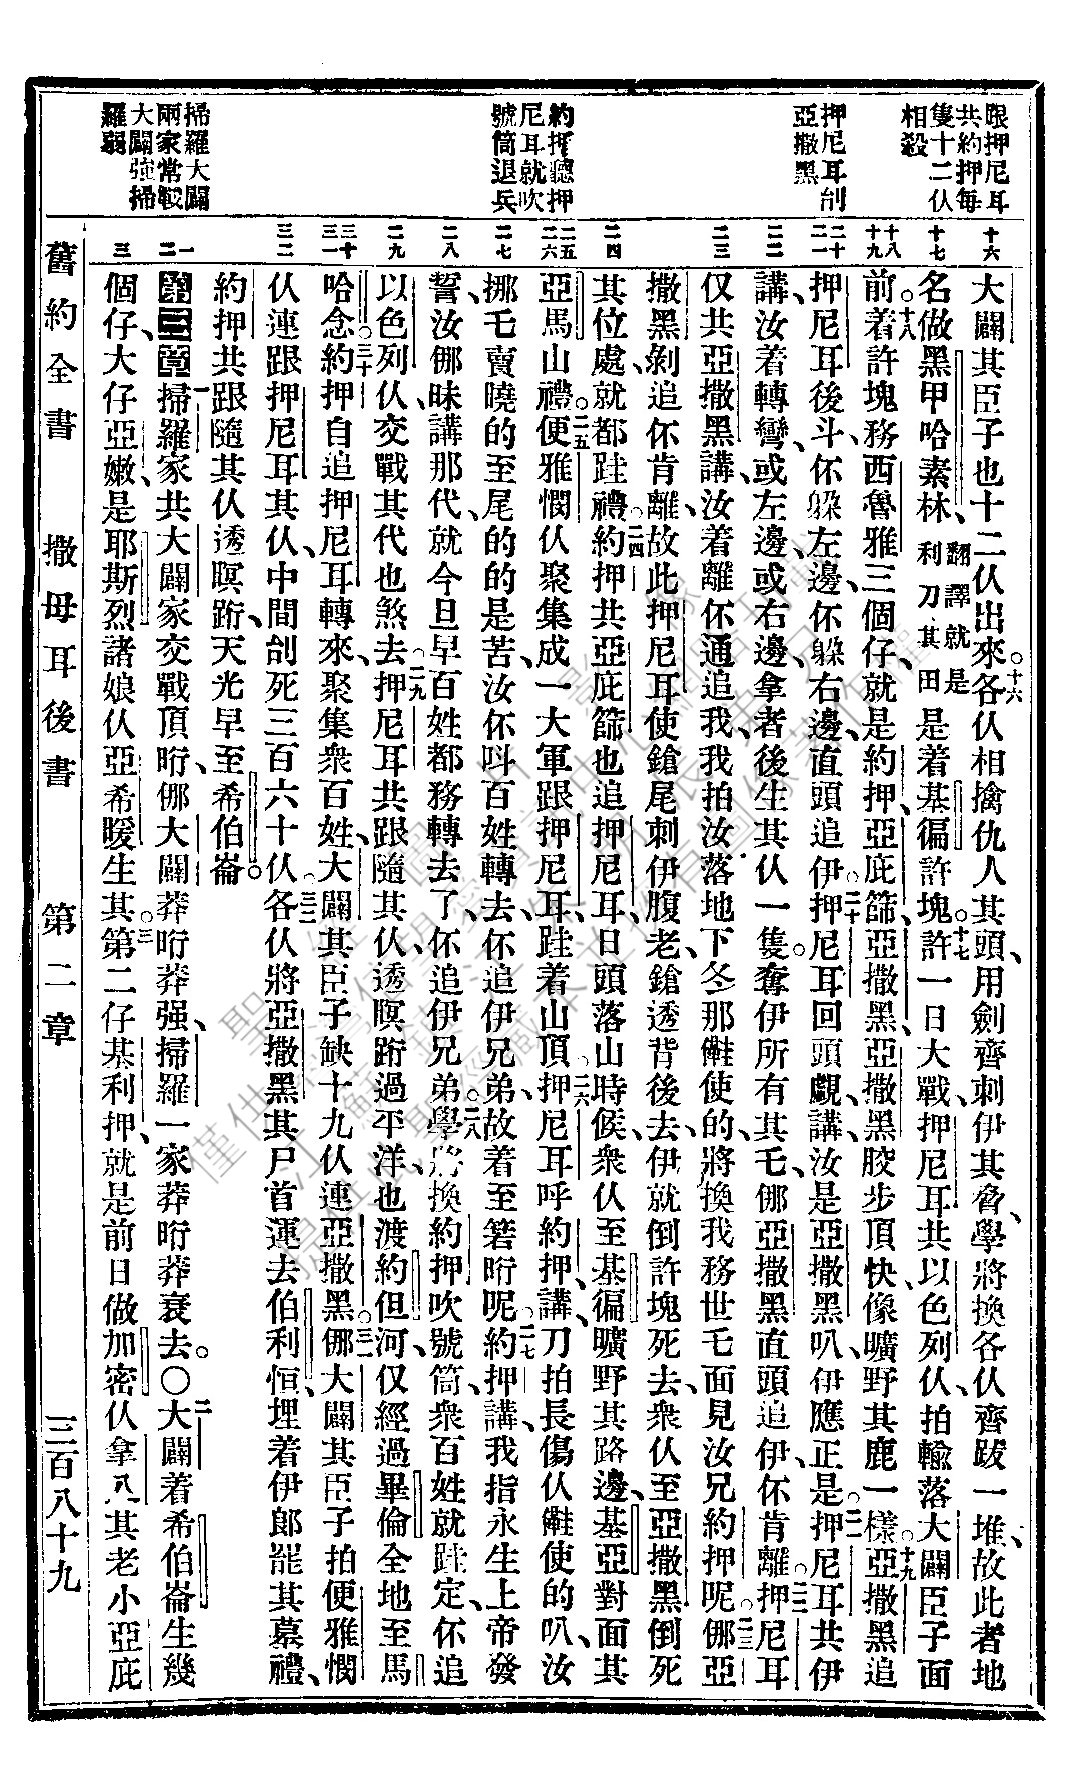 跟押尼耳
共約押每
隻十二仸
相殺
押尼耳刣
亞撒黑
約押聽押
尼耳就吹
號筒退兵
掃羅大闢
兩家常戰
大闢強掃
羅弱
十六
十七
十八
十九
二十
二一
二二
二三
二四
二五
二六
二七
二八
二九
三十
三一
三二
一
二
三
大闢其臣子也十二仸出來。十六各仸相擒仇人其頭、用劍齊刺伊其脅、學將換各仸齊跋一堆、故此者地
名做黑甲哈素林、翻譯就是利刀其田是着基徧許塊。十七許一日大戰押尼耳共以色列仸、拍輸落大闢臣子面
前。十八着許塊務西魯雅三個仔、就是約押、亞庇篩、亞撒黑、亞撒黑骹步頂快、像曠野其鹿一樣。十九亞撒黑追
押尼耳後斗、伓躲左邊、伓躲右邊、直頭追伊。二十押尼耳回頭覷講、汝是亞撒黑叭、伊應正是。二一押尼耳共伊
講、汝着轉彎、或左邊、或右邊、拿者後生其仸一隻、奪伊所有其乇、㑚亞撒黑直頭追伊、伓肯離。二二押尼耳
仅共亞撒黑講、汝着離伓通追我、我拍汝落地下、冬那㒰使的、將換我務世乇面見汝兄約押呢。二三㑚亞
撒黑剝追伓肯離、故此押尼耳使鎗尾刺伊腹老、鎗透背後去、伊就倒許塊死去、衆仸至亞撒黑倒死
其位處、就都跬禮。二四約押共亞庇篩也追押尼耳、日頭落山時候、衆仸至基徧曠野其路邊、基亞對面其
亞馬山禮。二五便雅憫仸聚集成一大軍跟押尼耳、跬着山頂。二六押尼耳呼約押、講、刀拍長傷仸㒰使的叭、汝
挪乇賣曉的至尾的的是苦、汝伓呌百姓轉去、伓追伊兄弟、故着至箬時呢。二七約押講、我指永生上帝發
誓、汝㑚昧講那代、就今旦早百姓都務轉去了、伓追伊兄弟。二八學將換約押吹號筒、衆百姓就跬定、伓追
以色列仸、交戰其代也煞去。二九押尼耳共跟隨其仸、透暝跴過平洋、也渡約但河、仅經過畢倫全地至馬
哈念。三十約押自追押尼耳轉來、聚集衆百姓、大闢其臣子缺十九仸連亞撒黑。三一㑚大闢其臣子拍便雅憫
仸連跟押尼耳其仸、中間刣死三百六十仸。三二各仸將亞撒黑其尸首運去伯利恒、埋着伊郎罷其墓禮、
約押共跟隨其仸透暝跴、天光早至希伯崙。
第三章一掃羅家、共大闢家交戰頂時、㑚大闢莽時莽强、掃羅一家莽時莽衰去。〇二大闢着希伯崙生幾
個仔、大仔亞嫩、是耶斯烈諸娘仸亞希暖生其。三第二仔基利押、就是前日做加密仸拿八其老小亞庇
舊約全書　撒母耳後書　第二章　三百八十九